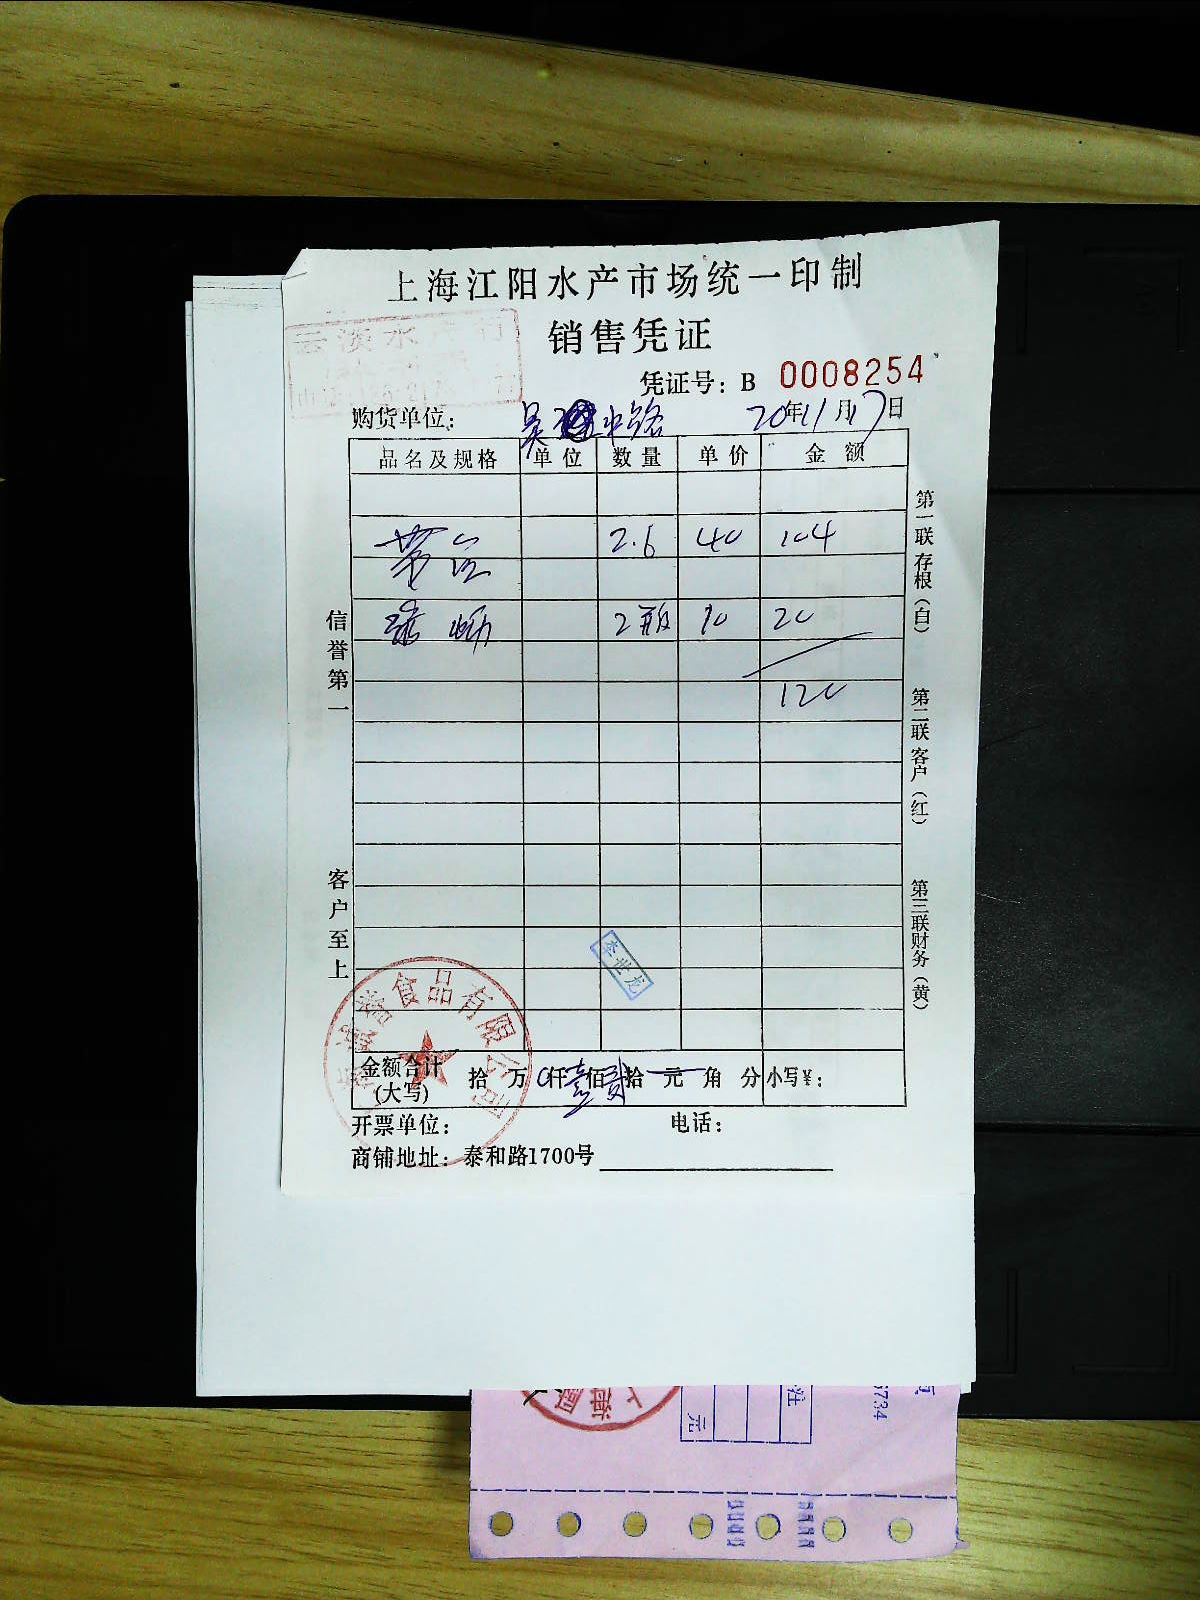 上海江阳水产市场统一印制
销售凭证
凭证号：B 0008254
购货单位： 吴中路 20年11月17日
品名及规格 单位 数量 单价 金额
2.6 40 104
2瓶 10 20
120
信誉第一
客户至上
第一联存根（白）
第二联客户（红）
第三联财务（黄）
李世龙
食品有限公司
金额合计（大写） 拾 万 0仟壹佰贰拾 元 角 分 小写¥：
开票单位： 电话：
商铺地址：泰和路1700号
注
元
3734